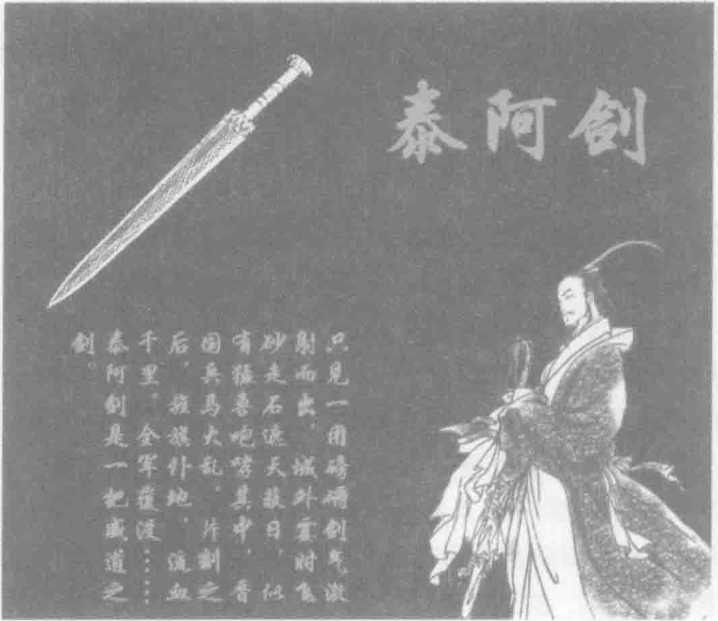 泰阿剑
只见一团磅礴剑气激
射而出，城外霎时飞
砂走石遮天蔽日，似
有猛兽咆哮其中，晋
国兵马大乱，片刻之
后，旌旗仆地，流血
千里，全军覆没……
泰阿剑是一把威道之
剑。